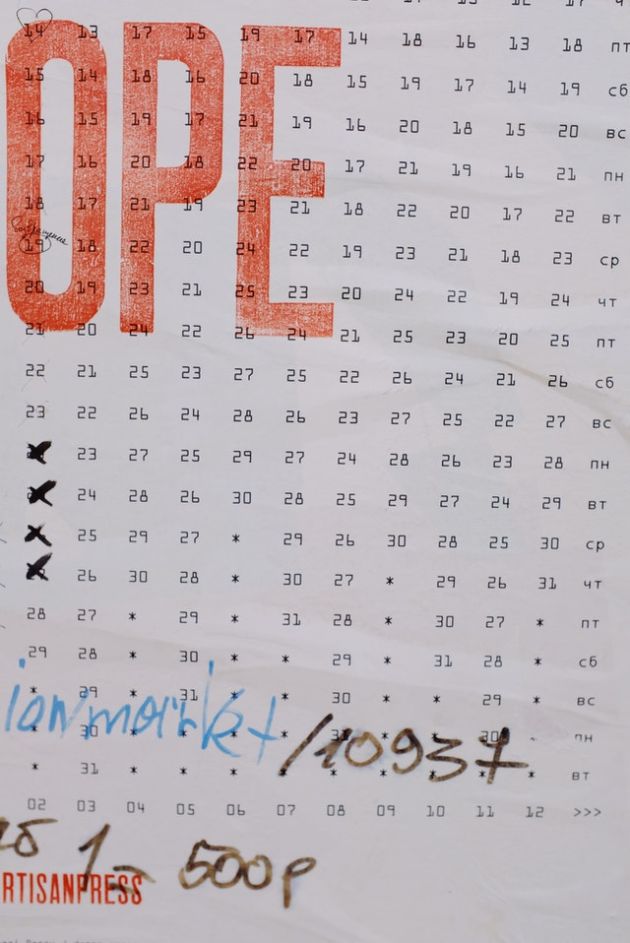 OPE
14 13 17 15 19 17 14 18 16 13 18 пт
15 14 18 16 20 18 15 19 17 14 19 сб
16 15 19 17 21 19 16 20 18 15 20 вс
17 16 20 18 22 20 17 21 19 16 21 пн
18 17 21 19 23 21 18 22 20 17 22 вт
19 18 22 20 24 22 19 23 21 18 23 ср
20 19 23 21 25 23 20 24 22 19 24 чт
21 20 24 22 26 24 21 25 23 20 25 пт
22 21 25 23 27 25 22 26 24 21 26 сб
23 22 26 24 28 26 23 27 25 22 27 вс
23 27 25 29 27 24 28 26 23 28 пн
24 28 26 30 28 25 29 27 24 29 вт
25 29 27 * 29 26 30 28 25 30 ср
26 30 28 * 30 27 * 29 26 31 чт
28 27 * 29 * 31 28 * 30 27 * пт
29 28 * 30 * * 29 * 31 28 * сб
* 29 * 31 * * 30 * * 29 * вс
30 * * * * 31 * * 30 пн
/10937
* 31 * * * * * * * * * вт
02 03 04 05 06 07 08 09 10 11 12 >>>
1- 500р
RTISANPRESS